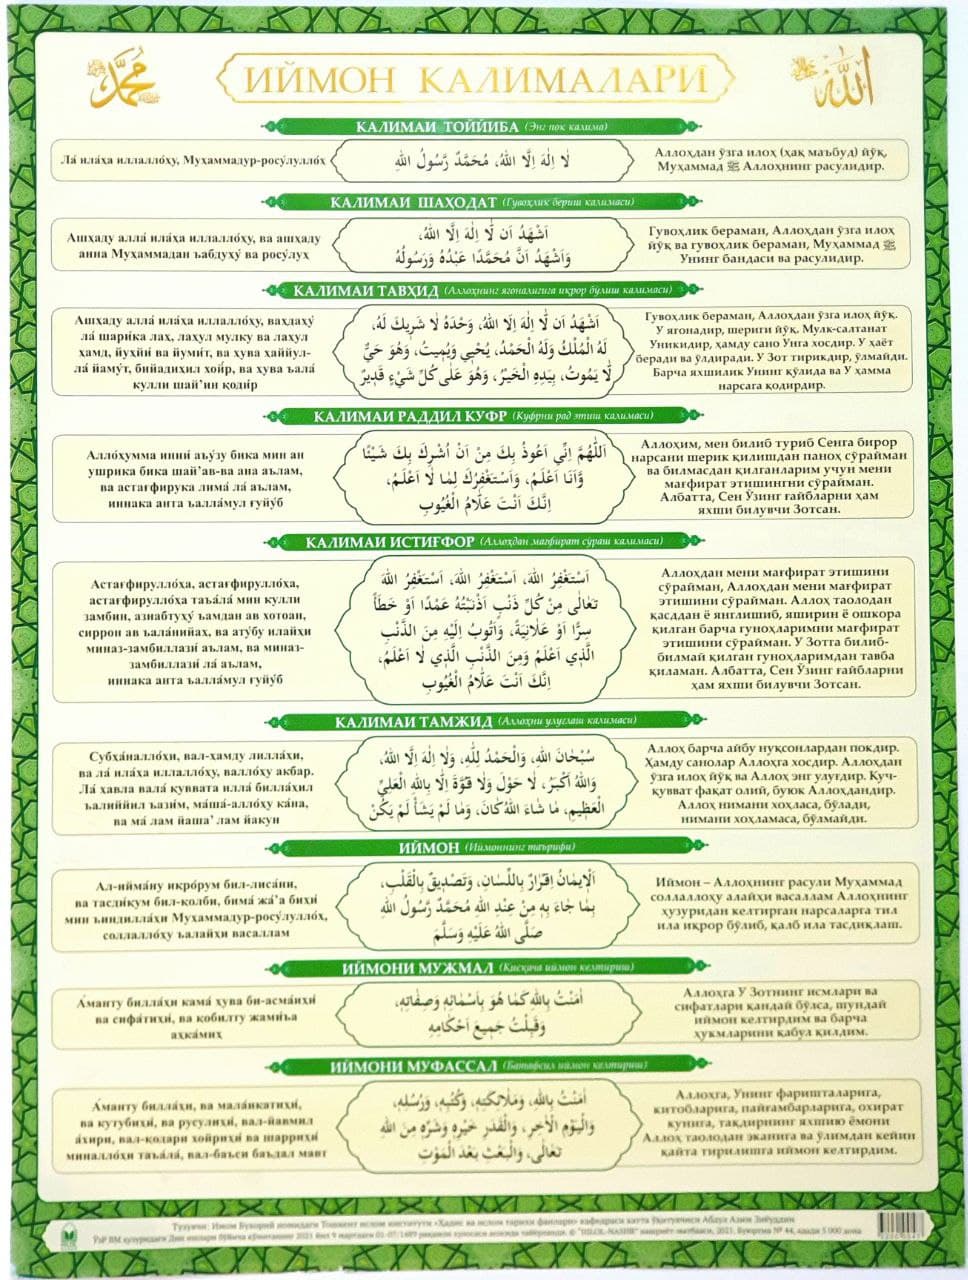 محمد
ИЙМОН КАЛИМАЛАРИ
الله
КАЛИМАИ ТОЙЙИБА (Энг пок калима)
Ла́ ила́ҳа иллалло́ҳу, Муҳаммадур-росу́лулло́ҳ
لَا اِلٰهَ اِلَّا اللهُ، مُحَمَّدٌ رَّسُولُ اللهِ
Аллоҳдан ўзга илоҳ (ҳақ маъбуд) йўқ,
Муҳаммад ﷺ Аллоҳнинг расулидир.
КАЛИМАИ ШАҲОДАТ (Гувоҳлик бериш калимаси)
Ашҳаду алла́ ила́ҳа иллалло́ҳу, ва ашҳаду
анна Муҳаммадан ъабдуҳу́ ва росу́луҳ
اَشْهَدُ اَن لَّا اِلٰهَ اِلَّا اللهُ،
وَاَشْهَدُ اَنَّ مُحَمَّدًا عَبْدُهُ وَرَسُولُهُ
Гувоҳлик бераман, Аллоҳдан ўзга илоҳ
йўқ ва гувоҳлик бераман, Муҳаммад ﷺ
Унинг бандаси ва расулидир.
КАЛИМАИ ТАВҲИД (Аллоҳнинг ягоналигига иқрор бўлиш калимаси)
Ашҳаду алла́ ила́ҳа иллалло́ҳу, ваҳдаҳу́
ла́ шари́ка лаҳ, лаҳул мулку ва лаҳул
ҳамд, йуҳйи́ ва йуми́т, ва ҳува ҳаййул-
ла́ йаму́т, бийадиҳил хойр, ва ҳува ъала́
кулли шай’ин қоди́р
اَشْهَدُ اَن لَّا اِلٰهَ اِلَّا اللهُ، وَحْدَهُ لَا شَرِيكَ لَهُ،
لَهُ الْمُلْكُ وَلَهُ الْحَمْدُ، يُحْيِي وَيُمِيتُ، وَهُوَ حَيٌّ
لَّا يَمُوتُ، بِيَدِهِ الْخَيْرُ، وَهُوَ عَلَى كُلِّ شَيْءٍ قَدِيرٌ
Гувоҳлик бераман, Аллоҳдан ўзга илоҳ йўқ.
У ягонадир, шериги йўқ. Мулк-салтанат
Уникидир, ҳамду сано Унга хосдир. У ҳаёт
беради ва ўлдиради. У Зот тирикдир, ўлмайди.
Барча яхшилик Унинг қўлида ва У ҳамма
нарсага қодирдир.
КАЛИМАИ РАДДИЛ КУФР (Куфрни рад этиш калимаси)
Алло́ҳумма инни́ аъу́зу бика мин ан
ушрика бика шай’ав-ва ана аълам,
ва астағфирука лима́ ла́ аълам,
иннака анта ъалла́мул ғуйу́б
اَللّٰهُمَّ اِنِّي اَعُوذُ بِكَ مِنْ اَنْ اُشْرِكَ بِكَ شَيْئًا
وَّاَنَا اَعْلَمُ، وَاَسْتَغْفِرُكَ لِمَا لَا اَعْلَمُ،
اِنَّكَ اَنْتَ عَلَّامُ الْغُيُوبِ
Аллоҳим, мен билиб туриб Сенга бирор
нарсани шерик қилишдан паноҳ сўрайман
ва билмасдан қилганларим учун мени
мағфират этишингни сўрайман.
Албатта, Сен Ўзинг ғайбларни ҳам
яхши билувчи Зотсан.
КАЛИМАИ ИСТИҒФОР (Аллоҳдан мағфират сўраш калимаси)
Астағфирулло́ҳа, астағфирулло́ҳа,
астағфирулло́ҳа таъа́ла́ мин кулли
замбин, азнабтуҳу́ ъамдан ав хотоан,
сиррон ав ъала́нийаҳ, ва ату́бу илайҳи
миназ-замбиллази́ аълам, ва миназ-
замбиллази́ ла́ аълам,
иннака анта ъалла́мул ғуйу́б
اَسْتَغْفِرُ اللهَ، اَسْتَغْفِرُ اللهَ، اَسْتَغْفِرُ اللهَ
تَعَالٰى مِنْ كُلِّ ذَنْبٍ اَذْنَبْتُهُ عَمْدًا اَوْ خَطَأً
سِرًّا اَوْ عَلَانِيَةً، وَاَتُوبُ اِلَيْهِ مِنَ الذَّنْبِ
الَّذِي اَعْلَمُ وَمِنَ الذَّنْبِ الَّذِي لَا اَعْلَمُ،
اِنَّكَ اَنْتَ عَلَّامُ الْغُيُوبِ
Аллоҳдан мени мағфират этишини
сўрайман, Аллоҳдан мени мағфират
этишини сўрайман. Аллоҳ таолодан
қасддан ё янглишиб, яширин ё ошкора
қилган барча гуноҳларимни мағфират
этишини сўрайман. У Зотга билиб-
билмай қилган гуноҳларимдан тавба
қиламан. Албатта, Сен Ўзинг ғайбларни
ҳам яхши билувчи Зотсан.
КАЛИМАИ ТАМЖИД (Аллоҳни улуғлаш калимаси)
Субҳа́налло́ҳи, вал-ҳамду лилла́ҳи,
ва ла́ ила́ҳа иллалло́ҳу, валло́ҳу акбар.
Ла́ ҳавла вала́ қуввата илла́ билла́ҳил
ъалиййил ъази́м, ма́ша́-алло́ҳу ка́на,
ва ма́ лам йаша’ лам йакун
سُبْحَانَ اللهِ، وَالْحَمْدُ لِلّٰهِ، وَلَا اِلٰهَ اِلَّا اللهُ،
وَاللهُ اَكْبَرُ، لَا حَوْلَ وَلَا قُوَّةَ اِلَّا بِاللهِ الْعَلِيِّ
الْعَظِيمِ، مَا شَاءَ اللهُ كَانَ، وَمَا لَمْ يَشَأْ لَمْ يَكُنْ
Аллоҳ барча айбу нуқсонлардан покдир.
Ҳамду санолар Аллоҳга хосдир. Аллоҳдан
ўзга илоҳ йўқ ва Аллоҳ энг улуғдир. Куч-
қувват фақат олий, буюк Аллоҳдандир.
Аллоҳ нимани хоҳласа, бўлади,
нимани хоҳламаса, бўлмайди.
ИЙМОН (Иймоннинг таърифи)
Ал-ийма́ну иқро́рум бил-лиса́ни,
ва тасди́қум бил-қолби, бима́ жа́’а биҳи́
мин ъиндилла́ҳи Муҳаммадур-росу́лулло́ҳ,
соллалло́ҳу ъалайҳи васаллам
اَلْاِيمَانُ اِقْرَارٌ بِاللِّسَانِ، وَتَصْدِيقٌ بِالْقَلْبِ،
بِمَا جَاءَ بِهِ مِنْ عِنْدِ اللهِ مُحَمَّدٌ رَّسُولُ اللهِ
صَلَّى اللهُ عَلَيْهِ وَسَلَّمَ
Иймон – Аллоҳнинг расули Муҳаммад
соллаллоҳу алайҳи васаллам Аллоҳнинг
ҳузуридан келтирган нарсаларга тил
ила иқрор бўлиб, қалб ила тасдиқлаш.
ИЙМОНИ МУЖМАЛ (Қисқача иймон келтириш)
А́манту билла́ҳи кама́ ҳува би-асма́иҳи́
ва сифа́тиҳи́, ва қобилту жами́ъа
аҳка́миҳ
اٰمَنْتُ بِاللهِ كَمَا هُوَ بِاَسْمَائِهِ وَصِفَاتِهِ،
وَقَبِلْتُ جَمِيعَ اَحْكَامِهِ
Аллоҳга У Зотнинг исмлари ва
сифатлари қандай бўлса, шундай
иймон келтирдим ва барча
ҳукмларини қабул қилдим.
ИЙМОНИ МУФАССАЛ (Батафсил иймон келтириш)
А́манту билла́ҳи, ва мала́икатиҳи́,
ва кутубиҳи́, ва русулиҳи́, вал-йавмил
а́хири, вал-қодари хойриҳи́ ва шарриҳи́
миналло́ҳи таъа́ла́, вал-баъси баъдал мавт
اٰمَنْتُ بِاللهِ، وَمَلَائِكَتِهِ، وَكُتُبِهِ، وَرُسُلِهِ،
وَالْيَوْمِ الْاٰخِرِ، وَالْقَدَرِ خَيْرِهِ وَشَرِّهِ مِنَ اللهِ
تَعَالٰى، وَالْبَعْثِ بَعْدَ الْمَوْتِ
Аллоҳга, Унинг фаришталарига,
китобларига, пайғамбарларига, охират
кунига, тақдирнинг яхшию ёмони
Аллоҳ таолодан эканига ва ўлимдан кейин
қайта тирилишга иймон келтирдим.
Тузувчи: Имом Бухорий номидаги Тошкент ислом институти «Ҳадис ва ислом тарихи фанлари» кафедраси катта ўқитувчиси Абдул Азим Зиёуддин
ЎзР ВМ ҳузуридаги Дин ишлари бўйича қўмитанинг 2021 йил 9 мартдаги 01-07/1697 рақамли хулосаси асосида тайёрланди. © "HILOL-NASHR" нашриёт-матбааси, 2021. Буюртма № 44, адади 5 000 дона